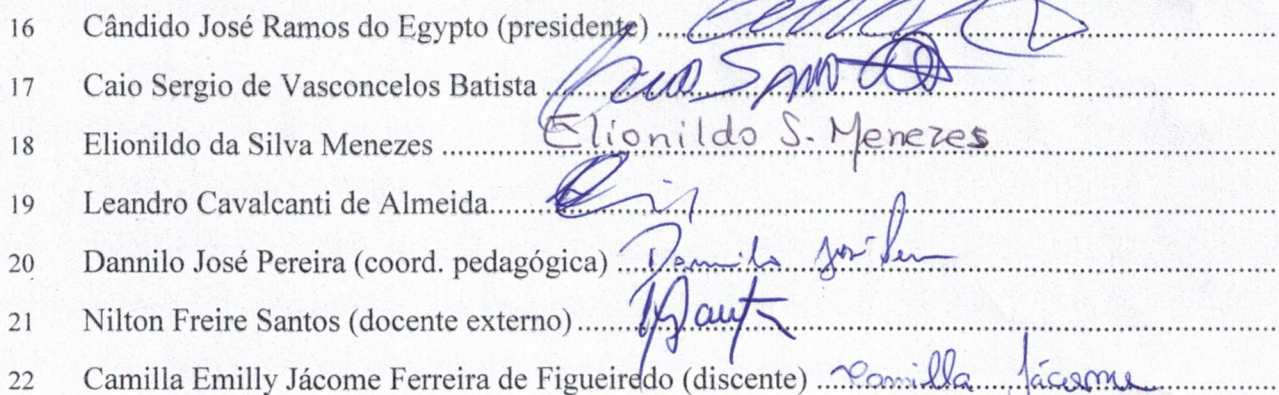 16 Cândido José Ramos do Egypto (presidente) ....................
17 Caio Sergio de Vasconcelos Batista ....................
18 Elionildo da Silva Menezes .................... Elionildo S. Menezes
19 Leandro Cavalcanti de Almeida....................
20 Dannilo José Pereira (coord. pedagógica) .... Dannilo José
21 Nilton Freire Santos (docente externo) ....................
22 Camilla Emilly Jácome Ferreira de Figueiredo (discente) .... Camilla Jácome